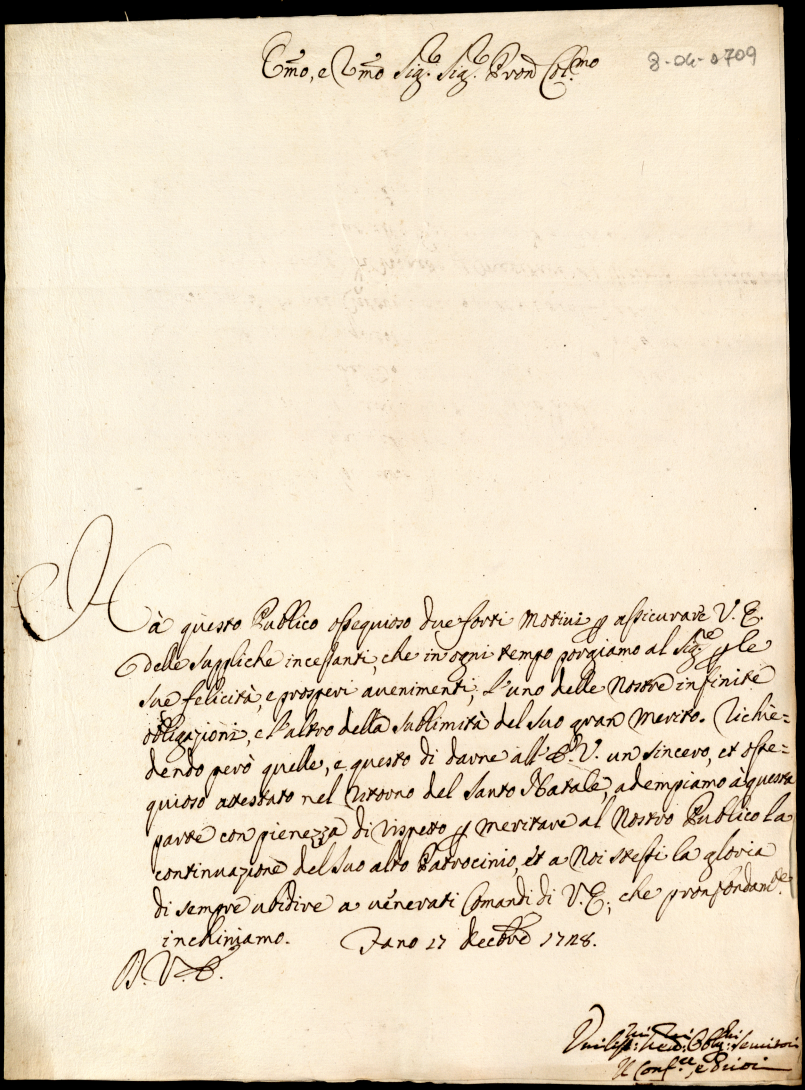 Emo, e Rmo Sig.r Sig.r Pron Col.mo
8-04-0709
Hà questo Publico ossequioso due forti Motivi p assicurare V. E.
delle suppliche incessanti, che in ogni tempo porgiamo al Sig.re p le
sue felicità, e prosperi avenimenti, l'uno delle Nostre infinite
obligazioni, e l'altro della sublimità del suo gran Merito. Richie=
dendo però quelle, e questo di darne all'E. V. un sincero, et osse=
quioso attestato nel ritorno del Santo Natale, adempiamo à questa
parte con pienezza di rispetto p meritare al Nostro Publico la
continuazione del suo alto Patrocinio, et a Noi stessi la gloria
di sempre ubidire a venerati Comandi di V. E., che profondam.te
inchiniamo. Fano 17 Decebre 1728.
D. V. E.
Umiliss:mi Obblig:mi Servitori
Il Conf.re, e Priori